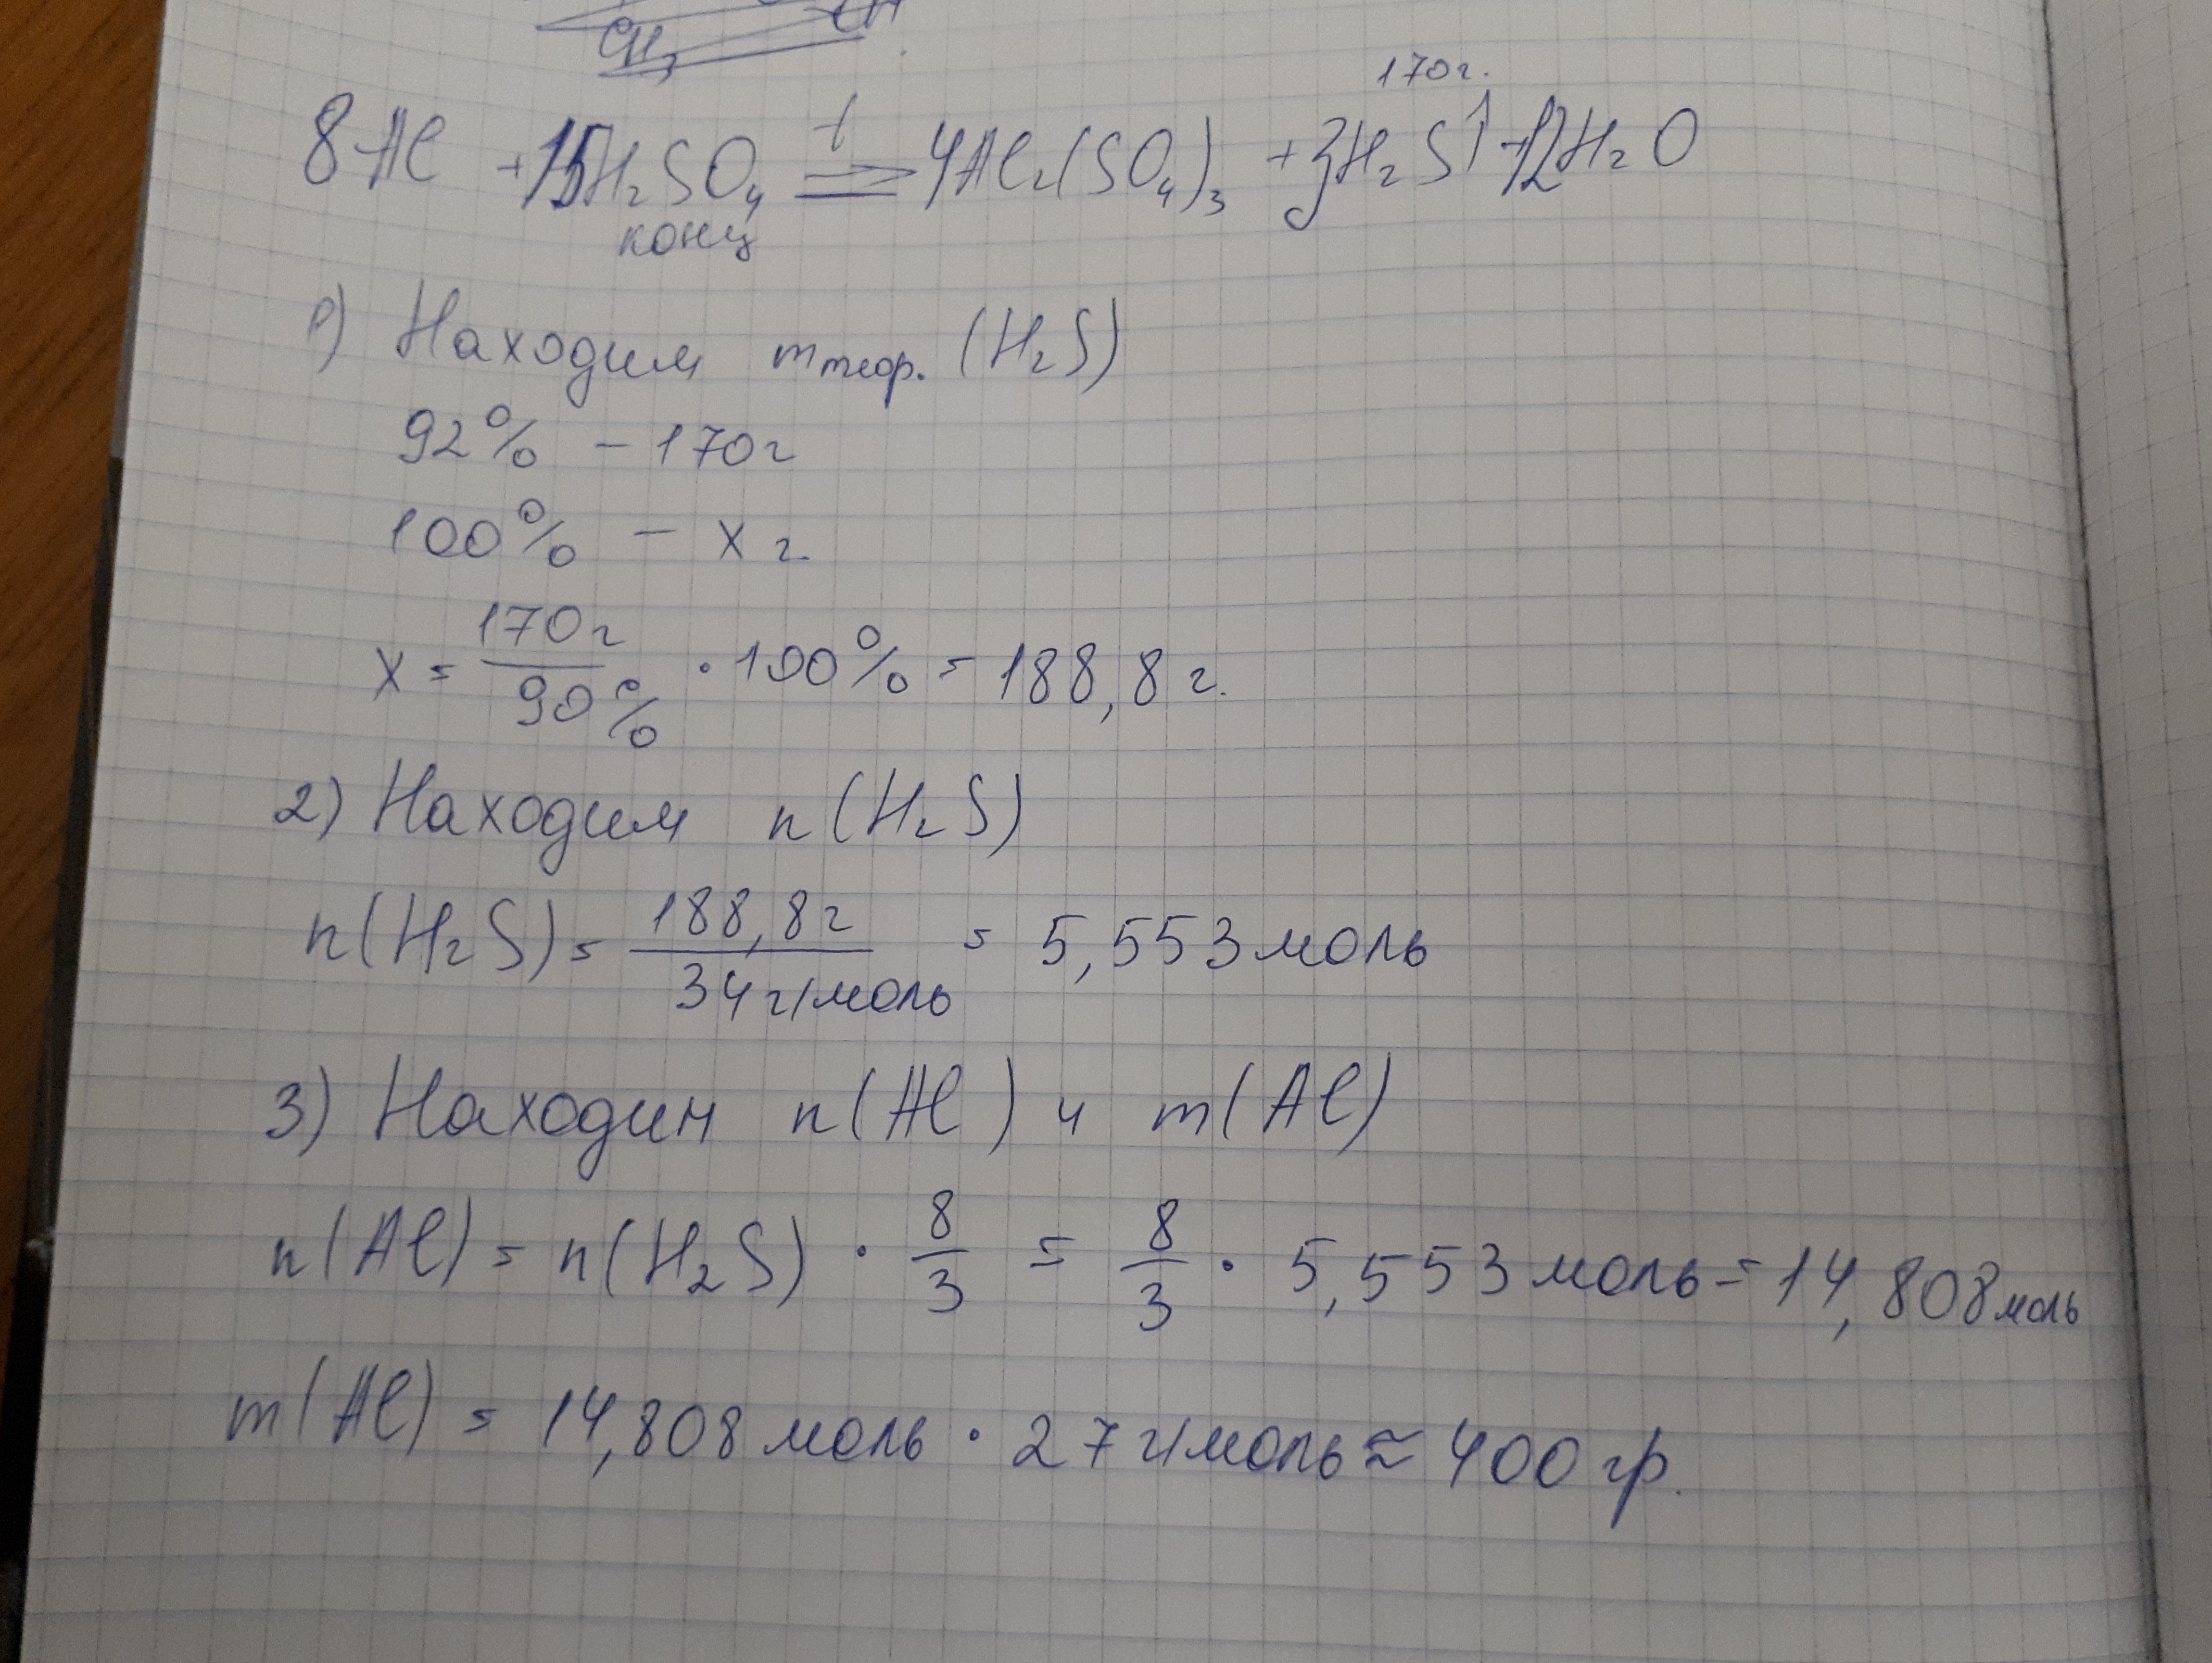 CH₃
170г.
8Al + 15H₂SO₄ t⇒ 4Al₂(SO₄)₃ + 3H₂S↑ + 12H₂O
конц
1) Находим mтеор. (H₂S)
92% – 170г
100% – x г.
x = 170г/90% · 100% = 188,8 г.
2) Находим n(H₂S)
n(H₂S) = 188,8г/34г/моль = 5,553 моль
3) Находим n(Al) и m(Al)
n(Al) = n(H₂S) · 8/3 = 8/3 · 5,553 моль = 14,808 моль
m(Al) = 14,808 моль · 27 г/моль ≈ 400 гр.